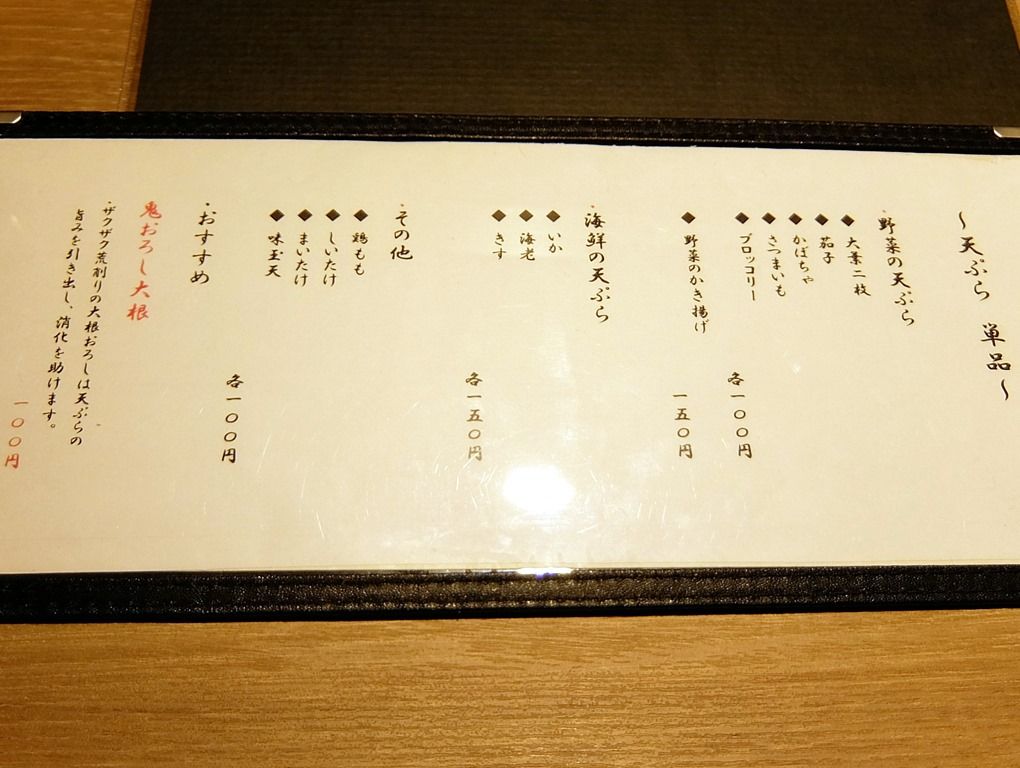 ～天ぷら 単品～
・野菜の天ぷら
◆大葉二枚
◆茄子
◆かぼちゃ
◆さつまいも
◆ブロッコリー
各一〇〇円
◆野菜のかき揚げ
一五〇円
・海鮮の天ぷら
◆いか
◆海老
◆きす
各一五〇円
・その他
◆鶏もも
◆しいたけ
◆まいたけ
◆味玉天
各一〇〇円
・おすすめ
鬼おろし大根
・ザクザク荒削りの大根おろしは天ぷらの
旨みを引き出し、消化を助けます。
一〇〇円